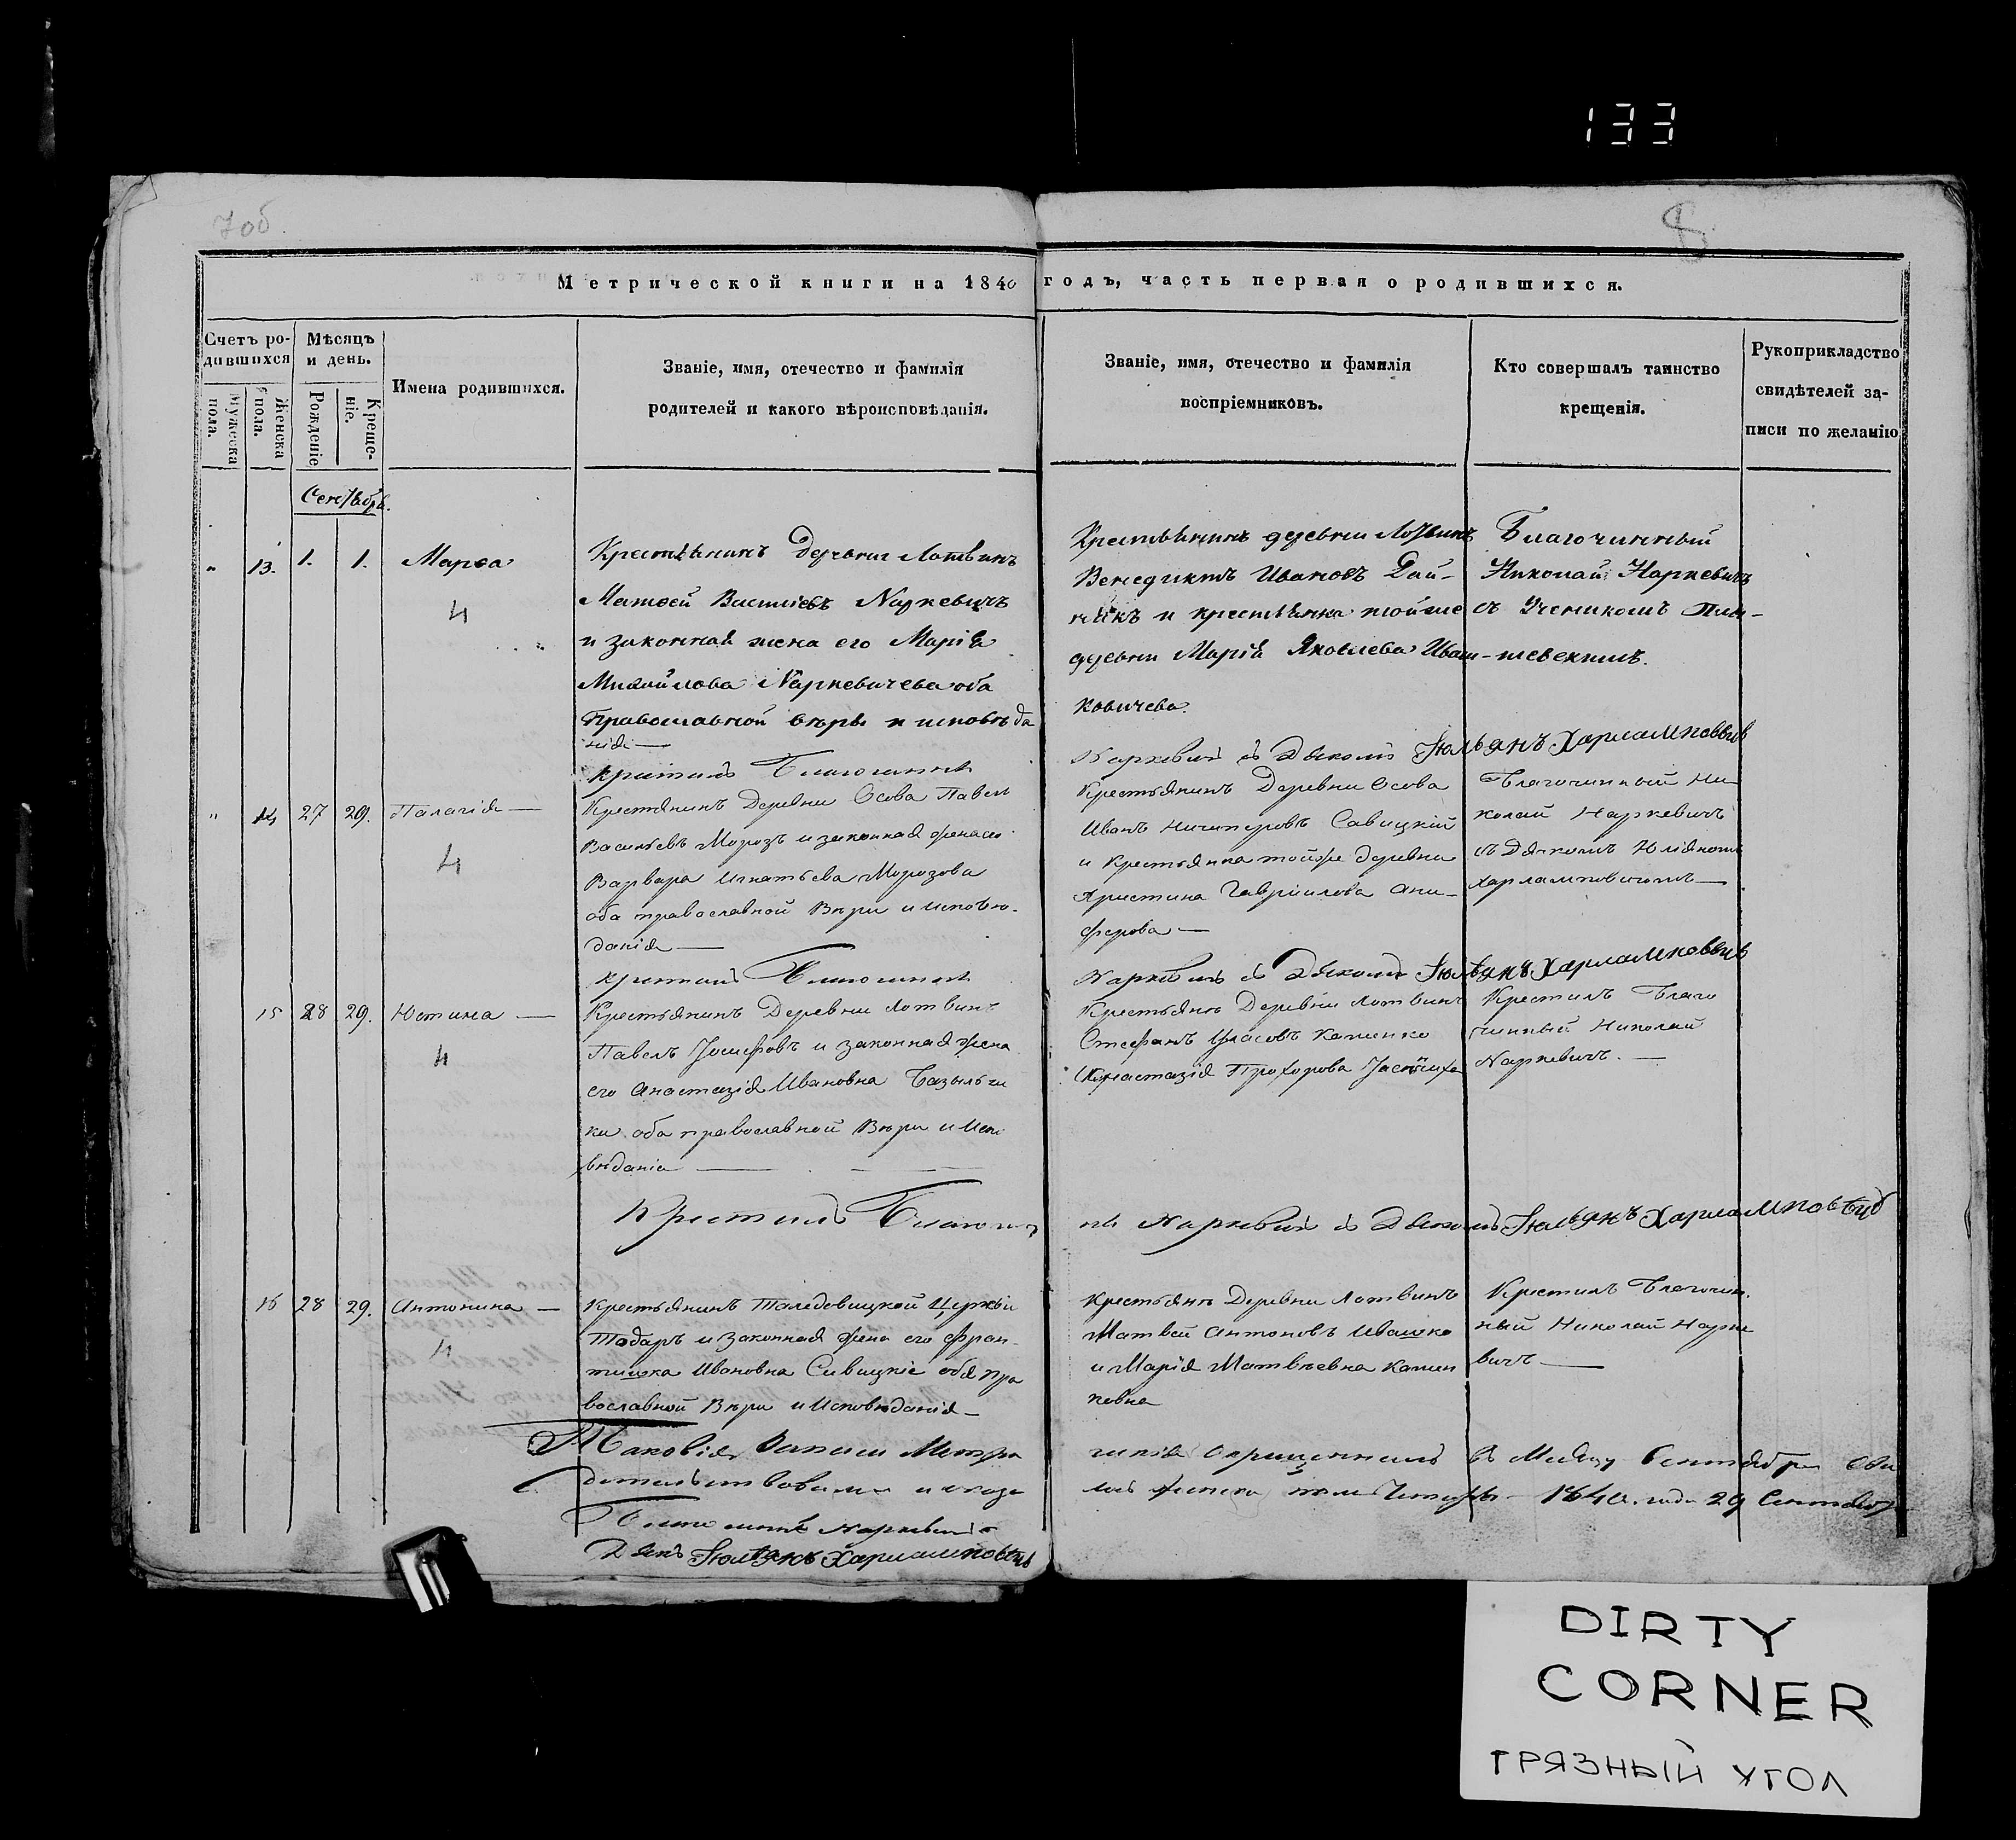 133
7 об.
8
Метрической книги на 1840 годъ, часть первая о родившихся.
Счетъ ро-
дившихся
Мужеска пола.
Женска пола.
Мѣсяцъ
и день.
Рожденіе
Креще-
ніе.
Имена родившихся.
Званіе, имя, отечество и фамилія
родителей и какого вѣроисповѣданія.
Званіе, имя, отечество и фамилія
воспріемниковъ.
Кто совершалъ таинство
крещенія.
Рукоприкладство
свидѣтелей за-
писи по желанію
Сентябрь.
" 13. 1. 1. Марѳа
4
Крестьянинъ деревни Лотвинъ
Матѳей Васильевъ Наркевичъ
и законная жена его Марія
Михайлова Наркевичева оба
Православной вѣры и исповѣда
нія —
Крестьянинъ деревни Лотвинъ
Венедиктъ Ивановъ Дай-
никъ и крестьянка тойже
деревни Марія Яковлева Иваш-
ковичева.
Благочинный
Николай Наркевичъ
съ Ученикомъ
крестилъ Благочинный
Наркевичъ съ Дьякомъ Юльянъ Харламповичъ
" 14 27 29. Палагія —
4
Крестьянинъ Деревни Осова Павелъ
Васильевъ Морозъ и законная жена его
Варвара Игнатьева Морозова
оба православной Вѣри и исповѣ-
данія —
Крестьянинъ Деревни Осова
Иванъ Ничипоровъ Савицкій
и Крестьянка тойже деревни
Христина Гавріилова Ани-
ферова —
Благочинный Ни
колай Наркевичъ
съ Дячкомъ Юліяномъ
Харламповичомъ —
крестилъ Благочинный
Наркевичъ съ Дьякомъ Юльянъ Харламповичъ
15 28 29. Юстина —
4
Крестьянинъ Деревни Лотвинъ
Павелъ Іосифовъ и законная жена
его Анастазія Ивановна Базыльчи
ки оба православной Вѣри и Испо
вѣданія —
Крестьянъ Деревни Лотвинъ
Стефанъ Власовъ Каменко
Анастазія Прохорова
Крестилъ Благо
чинный Николай
Наркевичъ. —
Крестилъ Благочин
ный Наркевичъ съ Дьякомъ Юльянъ Харламповичъ
16 28 29. Антонина —
4
Крестьянинъ Талядовицкой Церкви
Тодаръ и законная жена его Фран-
тишка Ивановна Сивицкіе обя пра
вославной Вѣри и Исповѣданія —
Крестьянъ Деревни Лотвинъ
Матвей Антоновъ Ивашко
и Марія Матвѣевна Камен
ковна
Крестилъ Благочин.
ный Николай Нарке
вичъ —
Таковія Записи Метри
ческія окрещеннимъ в Месяцу Сентябри Сви
детельствовали
1840. года 29 Сентября
Благочинный Наркевичъ
Дьякъ Юльянъ Харламповичъ
DIRTY
CORNER
ГРЯЗНЫЙ УГОЛ